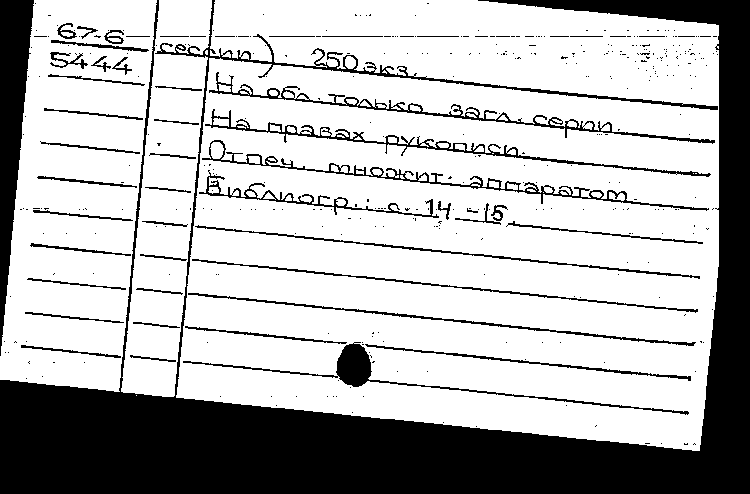 67-6
5444
сессии). 250 экз.
На обл. только загл. серии.
На правах рукописи.
Отпеч. множит. аппаратом.
Библиогр.: с. 14-15.